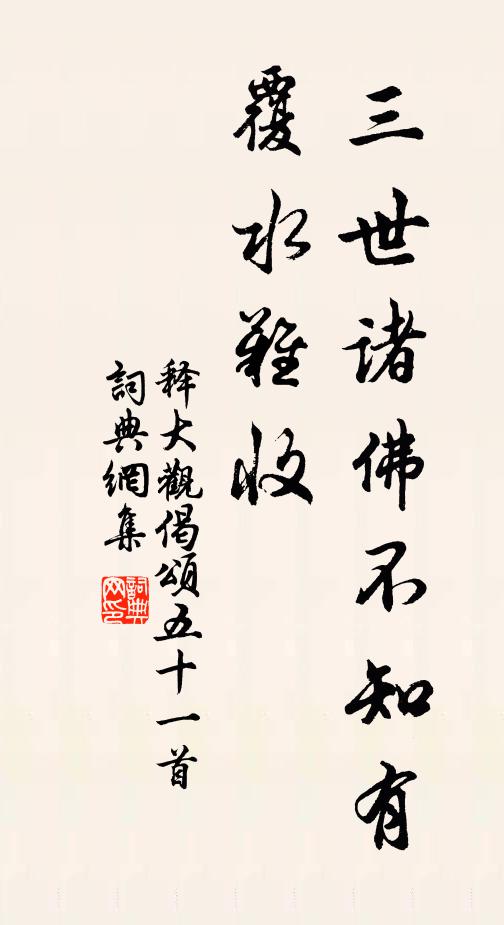 三世諸佛不知有
覆水難收
释大觀偈頌五十一首
詞典網集
詞典网印